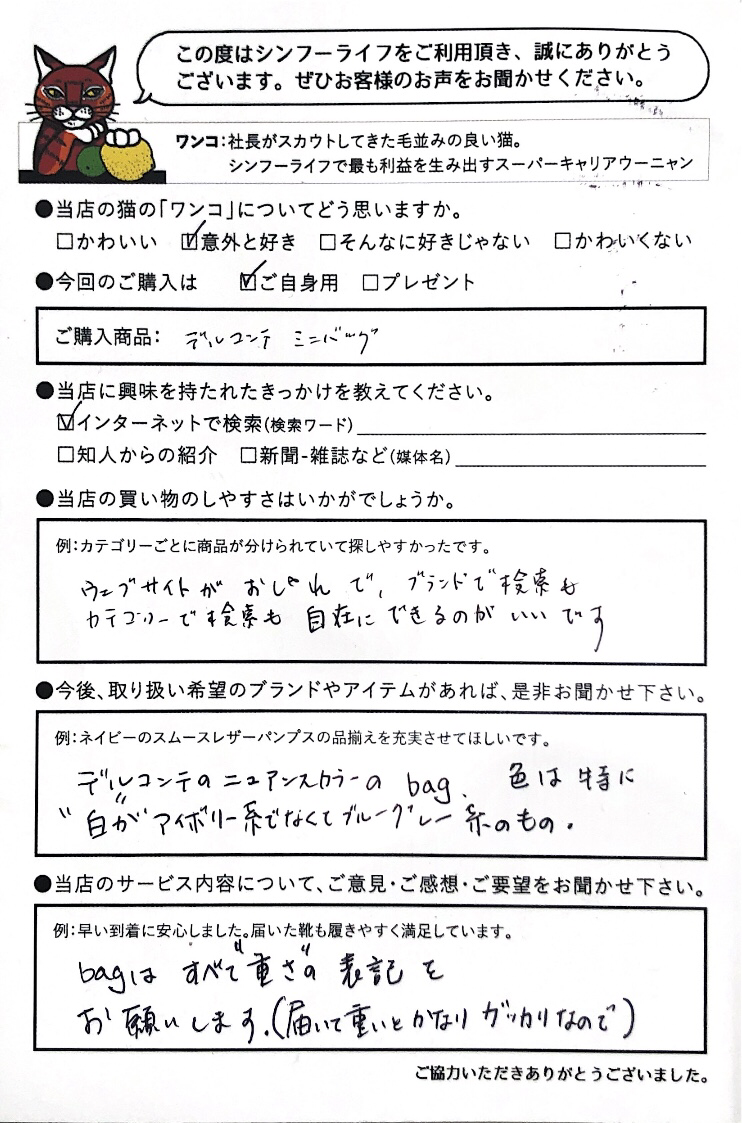 この度はシンフーライフをご利用頂き、誠にありがとう
ございます。ぜひお客様のお声をお聞かせください。
ワンコ:社長がスカウトしてきた毛並みの良い猫。
シンフーライフで最も利益を生み出すスーパーキャリアウーニャン
●当店の猫の「ワンコ」についてどう思いますか。
□かわいい ☑意外と好き □そんなに好きじゃない □かわいくない
●今回のご購入は ☑ご自身用 □プレゼント
ご購入商品: デルコンテ ミニバッグ
●当店に興味を持たれたきっかけを教えてください。
☑インターネットで検索(検索ワード)
□知人からの紹介 □新聞-雑誌など(媒体名)
●当店の買い物のしやすさはいかがでしょうか。
例:カテゴリーごとに商品が分けられていて探しやすかったです。
ウェブサイトが おしゃれ で、ブランドで検索も
カテゴリーで検索も 自在に できるのが いいです
●今後、取り扱い希望のブランドやアイテムがあれば、是非お聞かせ下さい。
例:ネイビーのスムースレザーパンプスの品揃えを充実させてほしいです。
デルコンテの ニュアンスカラーの bag. 色は 特に
"白が" アイボリー系でなくて ブルーグレー 系のもの.
●当店のサービス内容について、ご意見・ご感想・ご要望をお聞かせ下さい。
例:早い到着に安心しました。届いた靴も履きやすく満足しています。
bagは すべて "重さ"の 表記 を
お願いします.(届いて重いと かなり ガッカリなので)
ご協力いただきありがとうございました。